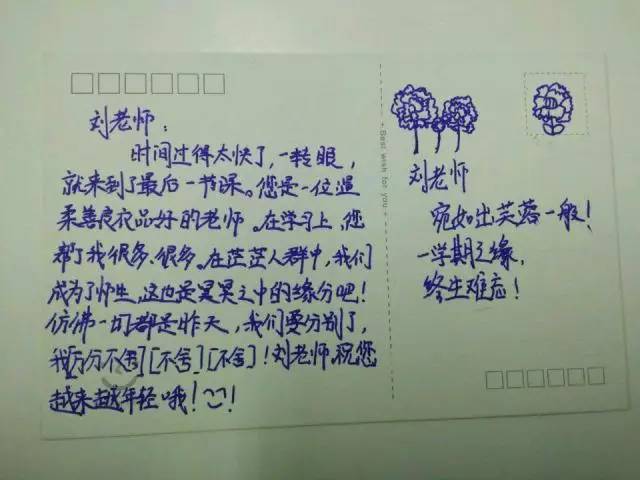 刘老师:
时间过得太快了,一转眼,
就来到了最后一节课。您是一位温
柔善良衣品好的老师。在学习上,您
帮了我很多、很多。在茫茫人群中,我们
成为了师生,这也是冥冥之中的缘分吧!
仿佛一切都是昨天,我们要分别了,
我[万分不舍][不舍][不舍]!刘老师,祝您
越来越年轻哦!
Best wish for you
刘老师
宛如出芙蓉一般!
一学期之缘,
终生难忘!